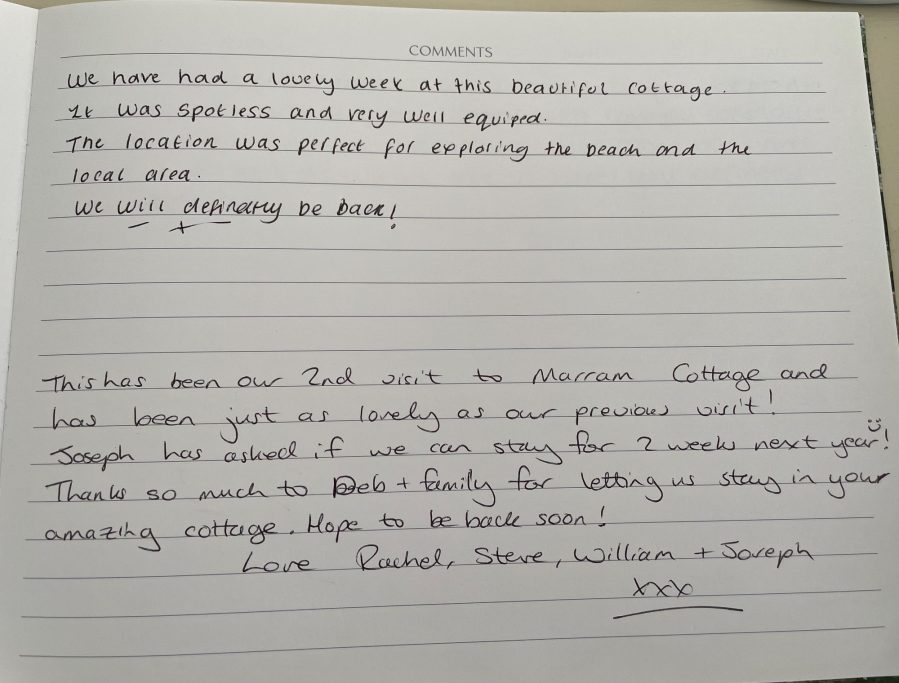 COMMENTS
We have had a lovely week at this beautiful cottage.
It was spotless and very well equiped.
The location was perfect for exploring the beach and the
local area.
We will definatly be back!
This has been our 2nd visit to Marram Cottage and
has been just as lovely as our previous visit!
Joseph has asked if we can stay for 2 weeks next year!
Thanks so much to Deb + family for letting us stay in your
amazing cottage. Hope to be back soon!
Love Rachel, Steve, William + Joseph
xxx